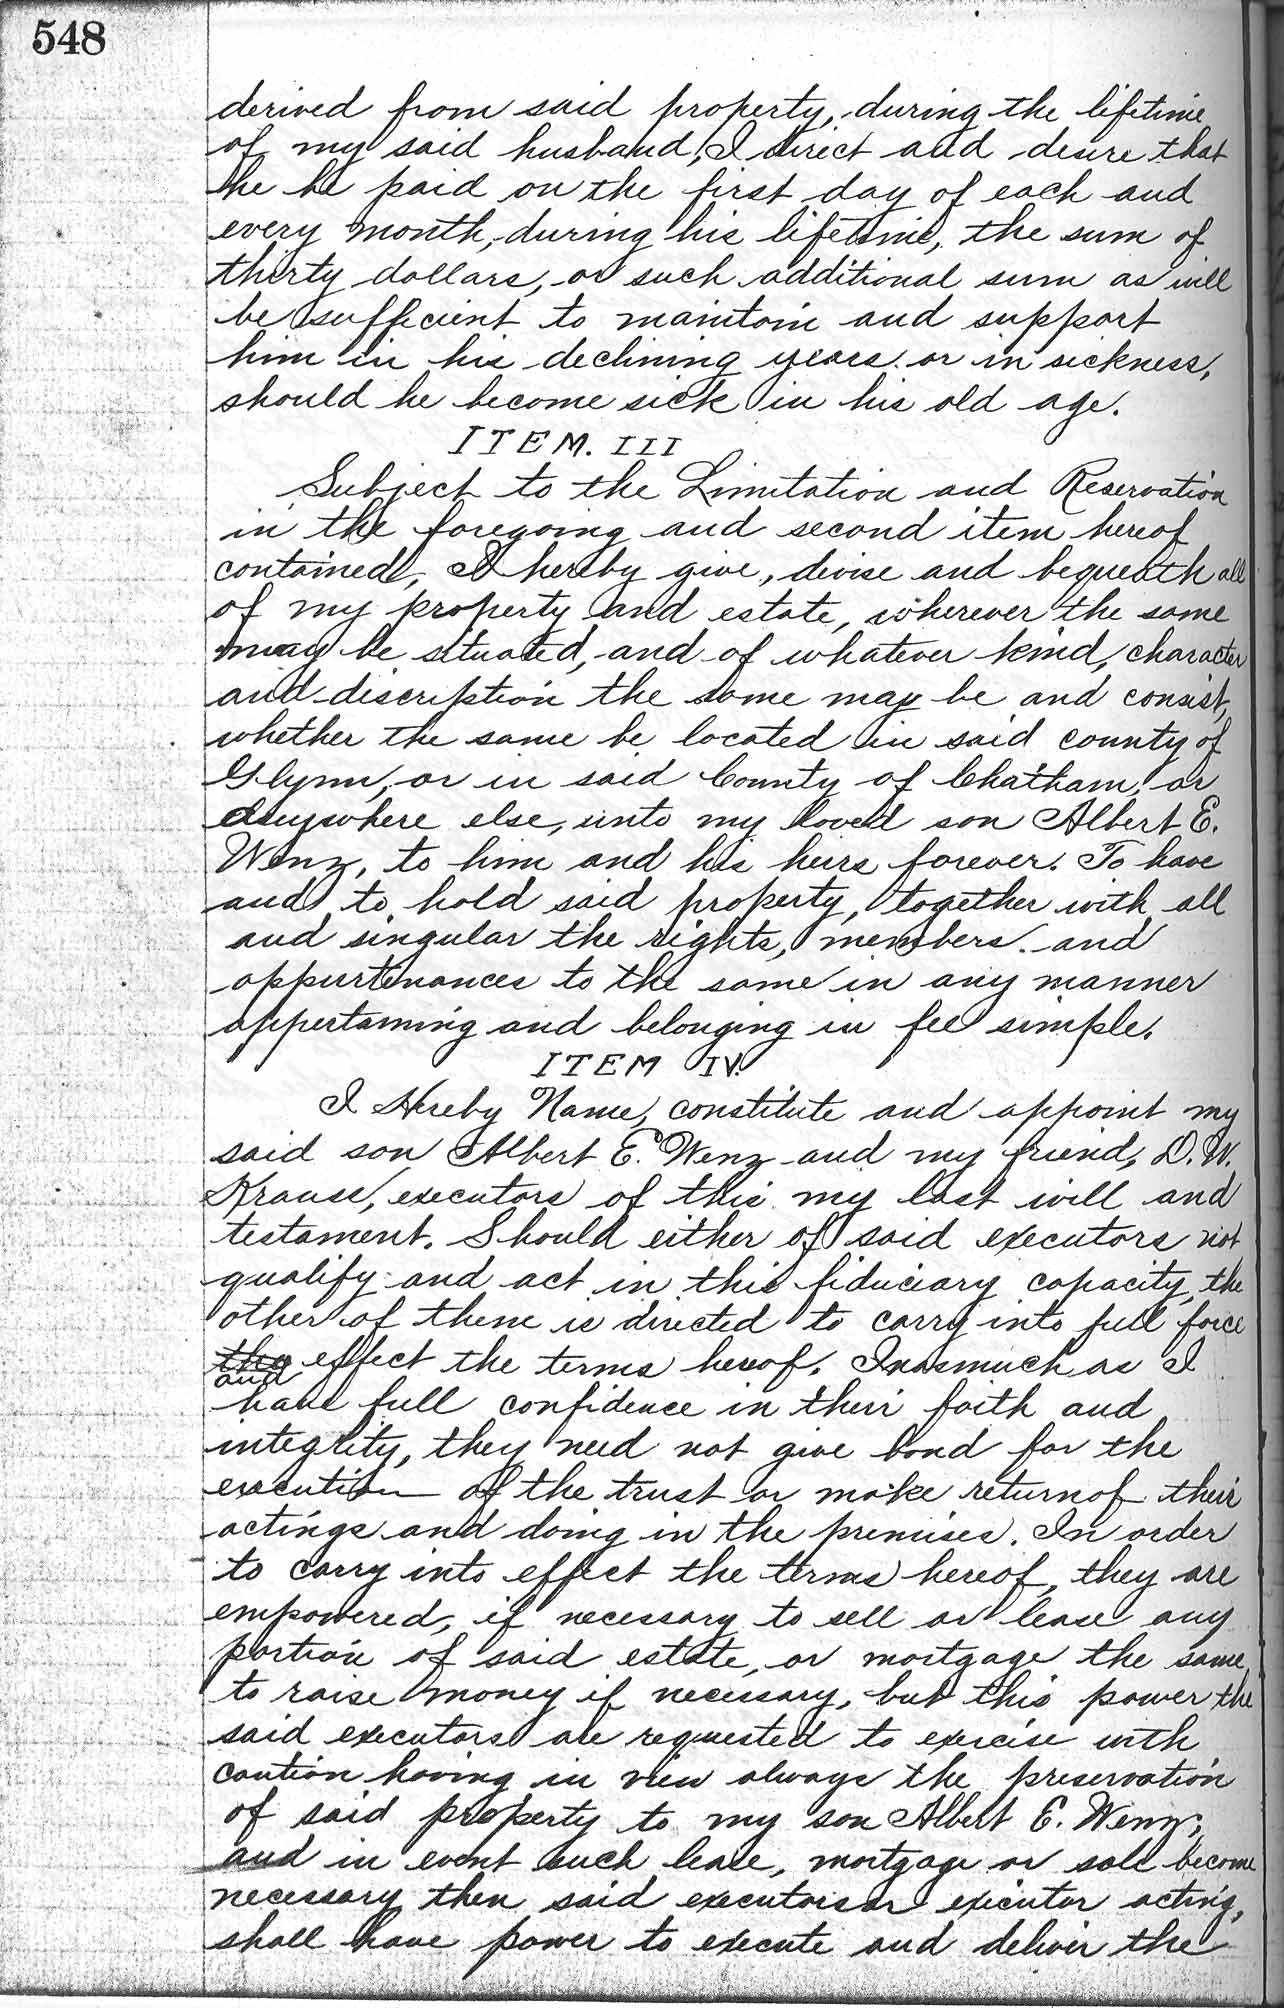 548
derived from said property, during the lifetime
of my said husband, I direct and desire that
he be paid on the first day of each and
every month, during his lifetime, the sum of
thirty dollars, or such additional sum as will
be sufficient to maintain and support
him in his declining years or in sickness,
should he become sick in his old age.
ITEM. III
Subject to the Limitation and Reservation
in the foregoing and second item hereof
contained, I hereby give, devise and bequeath all
of my property and estate, wherever the same
may be situated, and of whatever kind, character
and discription the same may be and consist,
whether the same be located in said county of
Glynn, or in said County of Chatham, or
anywhere else, unto my loved son Albert E.
Wenz, to him and his heirs forever. To have
and to hold said property, together with all
and singular the rights, members. and
appurtinances to the same in any manner
appertaining and belonging in fee simple.
ITEM IV.
I Hereby Name, constitute and appoint my
said son Albert E. Wenz and my friend, D. W.
Krause, executors of this my last will and
testament. Should either of said executors not
qualify and act in this fiduciary capacity, the
other of them is directed to carry into full force
the effect the terms hereof. Inasmuch as I
and
have full confidence in their faith and
integrity, they need not give bond for the
execution of the trust or make return of their
actings and doing in the premises. In order
to carry into effect the terms hereof, they are
empowered, if necessary to sell or lease any
portion of said estate, or mortgage the same
to raise money if necessary, but this power the
said executors are requested to exercise with
caution having in view always the preservation
of said property to my son Albert E. Wenz,
and in event such lease, mortgage or sale become
necessary then said executors or executor acting,
shall have power to execute and deliver the